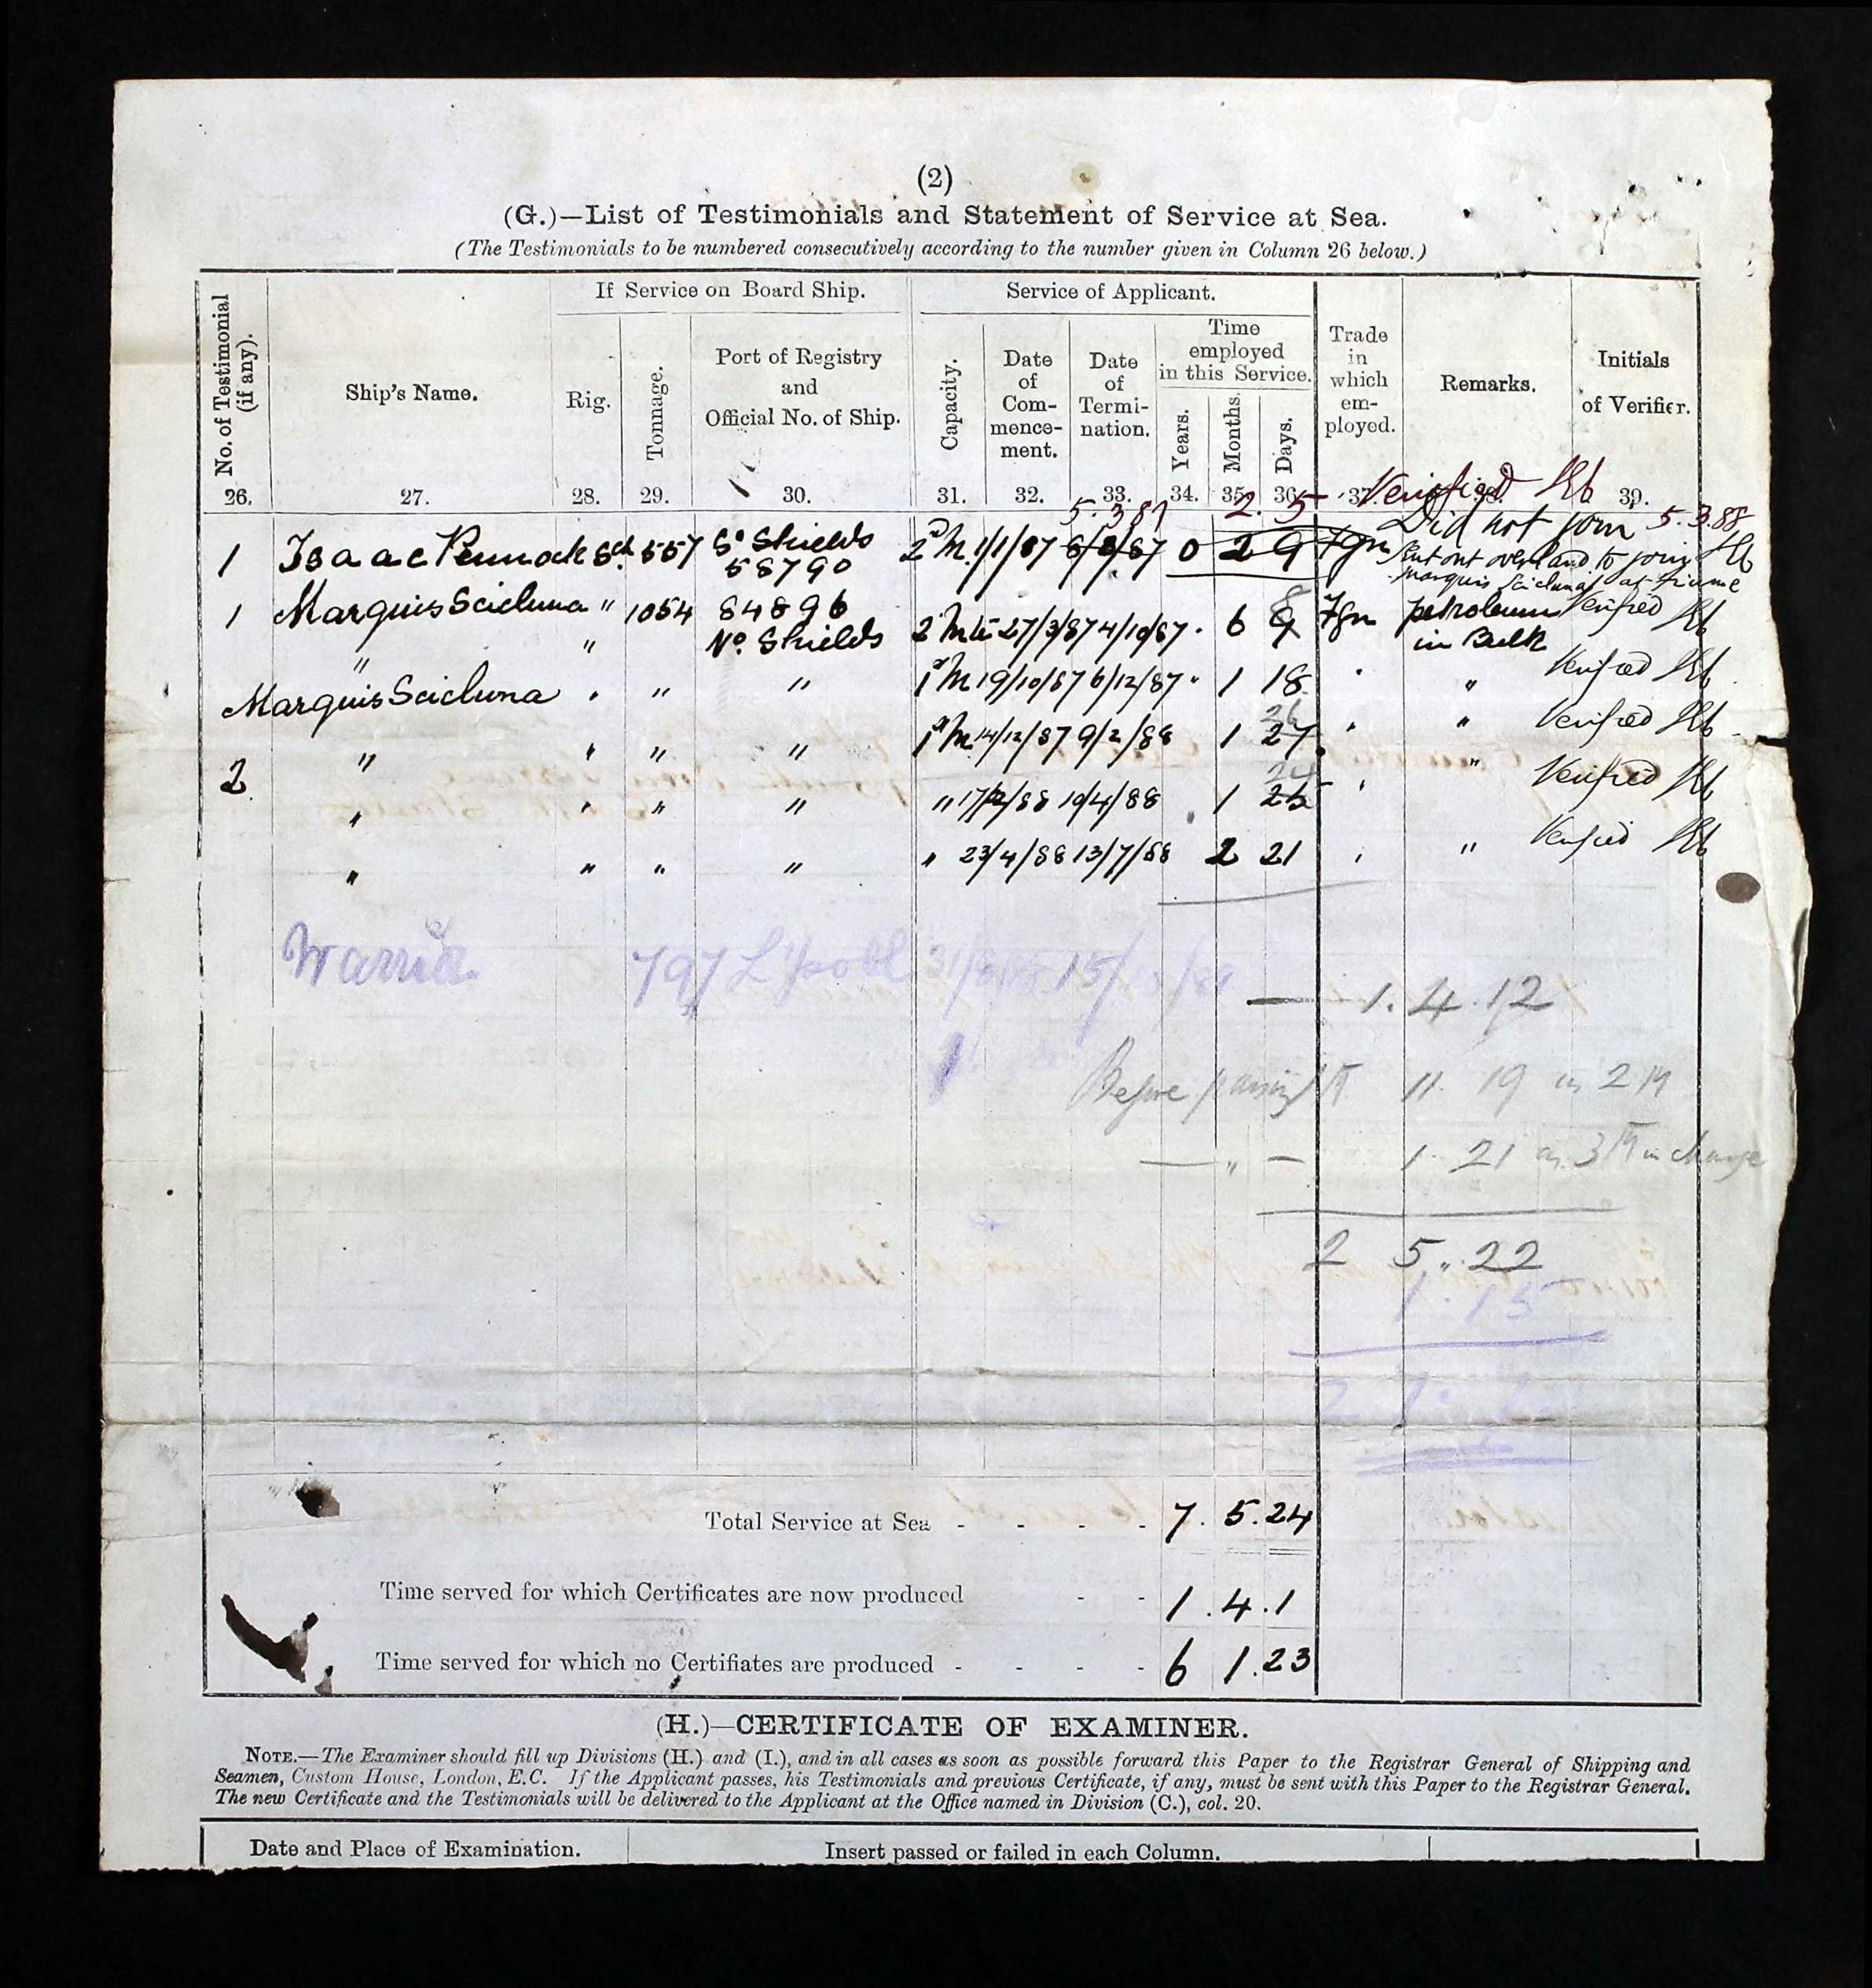 (2)
(G.)—List of Testimonials and Statement of Service at Sea.
(The Testimonials to be numbered consecutively according to the number given in Column 26 below.)
No. of Testimonial (if any).
Ship's Name.
If Service on Board Ship.
Rig.
Tonnage.
Port of Registry and Official No. of Ship.
Service of Applicant.
Capacity.
Date of Com- mence- ment.
Date of Termi- nation.
Time employed in this Service.
Years.
Months.
Days.
Trade in which em- ployed.
Remarks.
Initials of Verifier.
26. 27. 28. 29. 30. 31. 32. 33. 34. 35. 36. 37. 38. 39.
Verified
5.3.87 2. 5
Did not join 5.3.88
1 Isaac Pennock Sch 557 So Shields 2d M. 1/1/87 0 2 9 Fgn
58790
but out overland to join
Marquis Scicluna at Fiume
1 Marquis Scicluna " 1054 84896 2 Mte 27/3/87 4/10/87 6 8 Fgn petroleum Verified
No. Shields in Bulk
" " " " 1st M 19/10/87 6/12/87 " 1 18 " Verified
Marquis Scicluna " " " 1st M 14/12/87 9/2/88 1 27 26 " Verified
2 " " " " " 17/2/88 10/4/88 1 25 24 " Verified
" " " " " 23/4/88 13/7/88 2 21 " Verified
797 L'pool 15/
— 1. 4. 12
Before passing 11. 19 as 2 M
— " — 1. 21 as 3 M in charge
2 5 .. 22
1. 15
2 7.
Total Service at Sea - - - - 7. 5. 24
Time served for which Certificates are now produced - - 1. 4. 1
Time served for which no Certifiates are produced - - - - 6 1. 23
(H.)—CERTIFICATE OF EXAMINER.
NOTE.—The Examiner should fill up Divisions (H.) and (I.), and in all cases as soon as possible forward this Paper to the Registrar General of Shipping and
Seamen, Custom House, London, E.C. If the Applicant passes, his Testimonials and previous Certificate, if any, must be sent with this Paper to the Registrar General.
The new Certificate and the Testimonials will be delivered to the Applicant at the Office named in Division (C.), col. 20.
Date and Place of Examination.
Insert passed or failed in each Column.